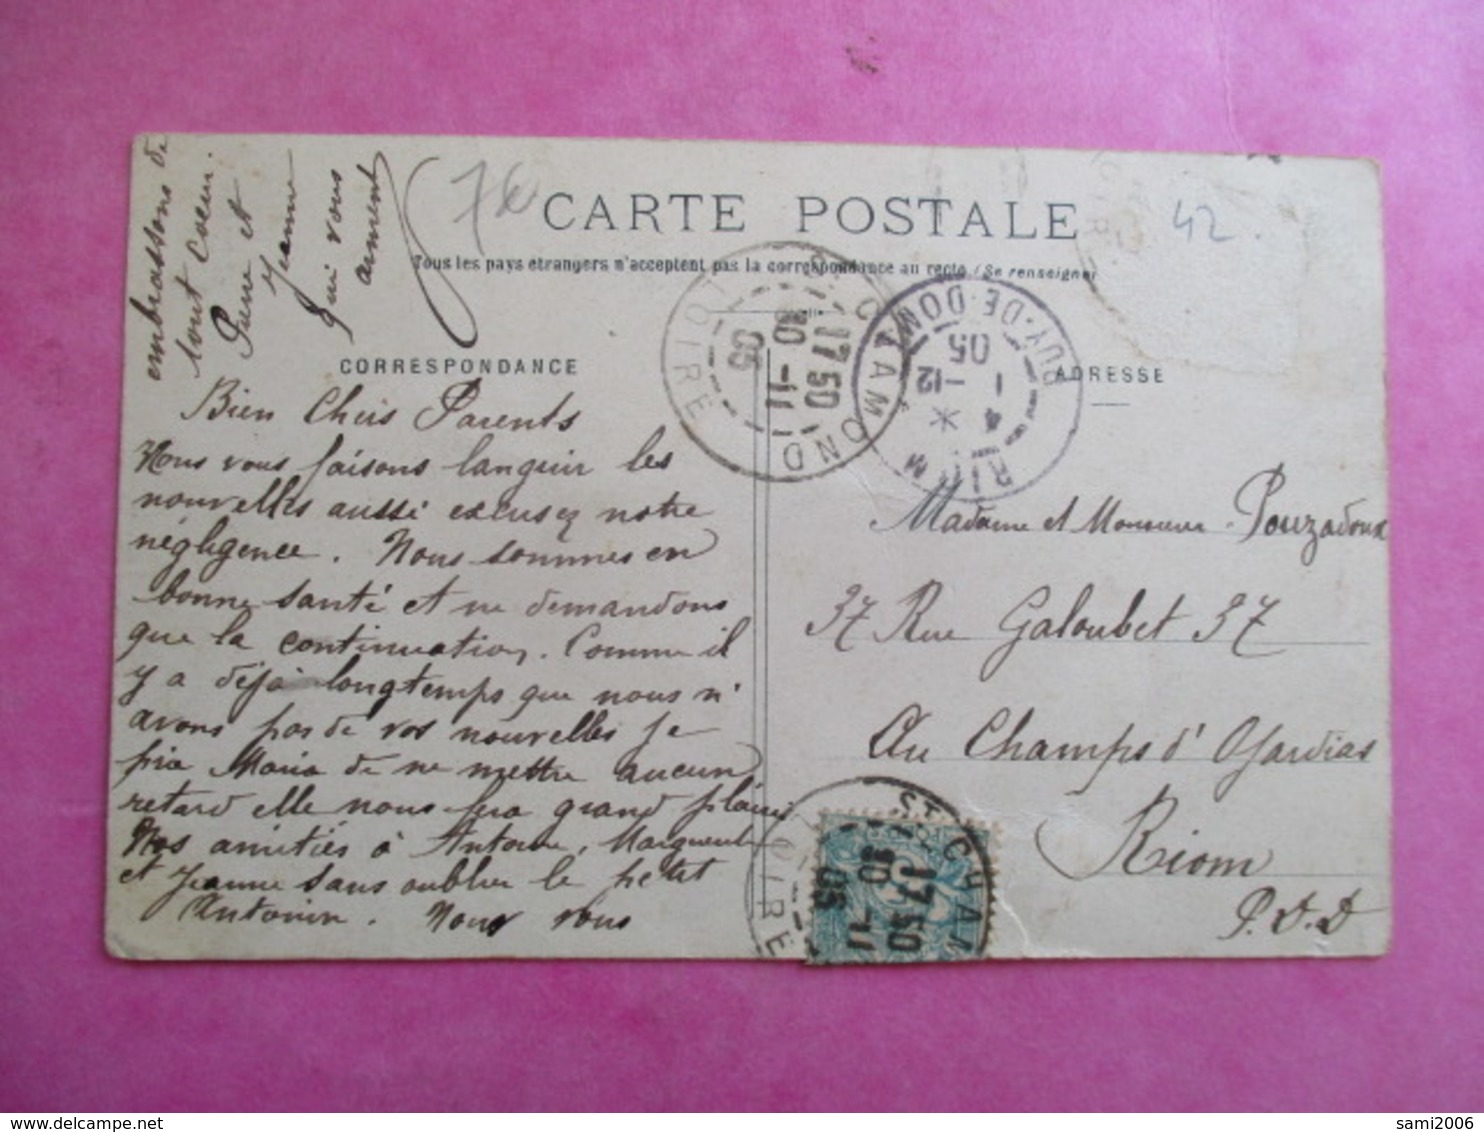 76
CARTE POSTALE
42.
Tous les pays étrangers n'acceptent pas la correspondance au recto (Se renseigner
CORRESPONDANCE
ADRESSE
Bien Chers Parents
Nous vous faisons languir les
nouvelles aussi excusez notre
négligence. Nous sommes en
bonne santé et ne demandons
que la continuation. Comme il
y a déjà longtemps que nous n'
avons pas de vos nouvelles je
prie Maria de ne mettre aucun
retard elle nous fera grand plaisir
Nos amitiés à Antoine, Marguerite
et Jeanne sans oublier le petit
Antonin. Nous vous
embrassons de
tout cœur.
Pierre et
Jeanne
qui vous
aiment
Madame et Monsieur Pouzadoux
37 Rue Galoubet 37
Au Champs d'
Riom
P.D.D
ST CHAMOND
17 50
30 -11
05
LOIRE
RIOM
4 *
1 -12
05
PUY-DE-DOME
ST CHAM
17 50
30 -11
05
LOIRE
delcampe.net
sami2006